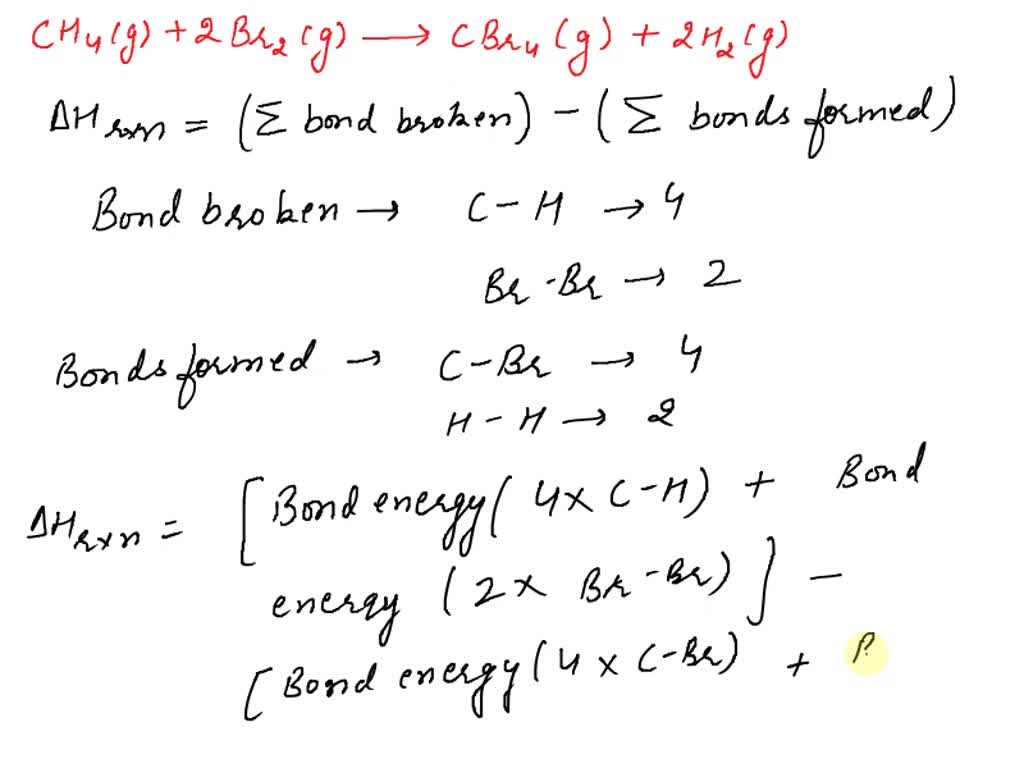 CH₄(g) + 2Br₂(g) ⟶ CBr₄(g) + 2H₂(g)
ΔHrxn = (Σ bond broken) − (Σ bonds formed)
Bond broken → C−H → 4
Br-Br → 2
Bonds formed → C−Br → 4
H−H → 2
ΔHrxn = [Bond energy(4× C−H) + Bond
energy (2× Br−Br)] −
[Bond energy(4× C−Br) +